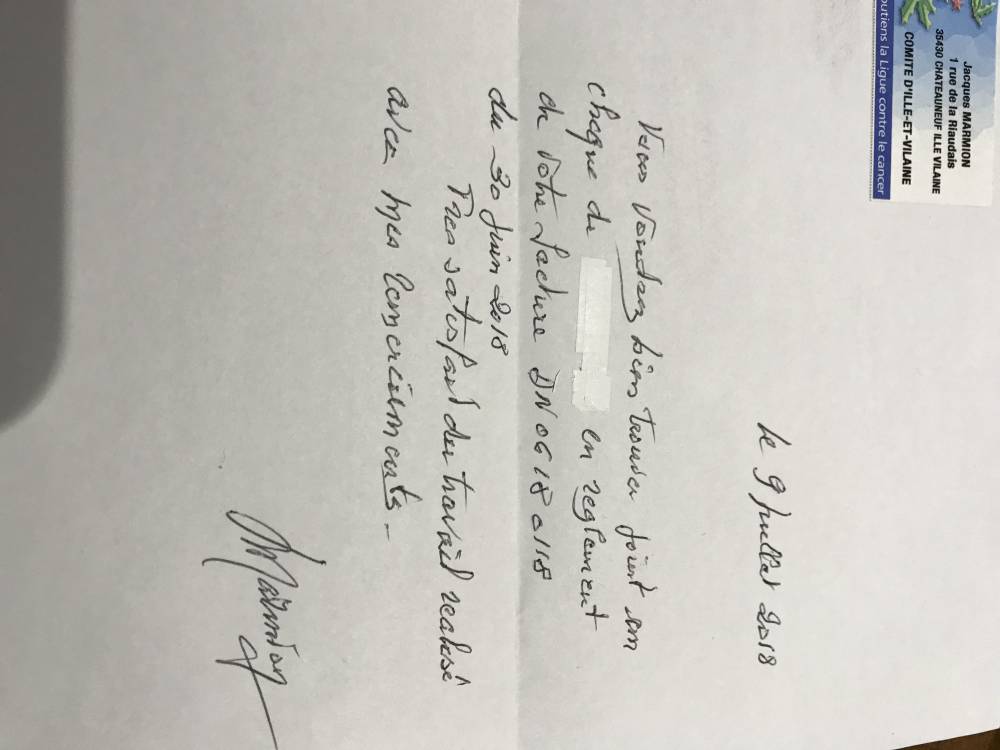 Jacques MARMION
1 rue de la Riaudais
35430 CHATEAUNEUF ILLE VILAINE
COMITE D'ILLE-ET-VILAINE
outiens la Ligue contre le cancer
le 9 juillet 2018
Vous voudrez bien trouver joint un
chèque de en règlement
de votre facture DN 0618 0118
du 30 juin 2018
Très satisfait du travail réalisé
avec mes remerciements -
JMarmion